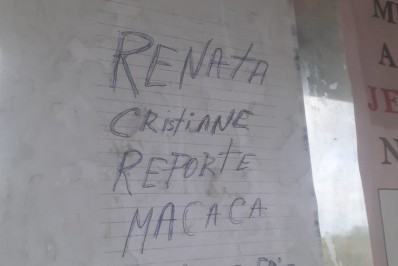 RENATA
CRISTIANE
REPORTE
MACACA
M
A
JE
N